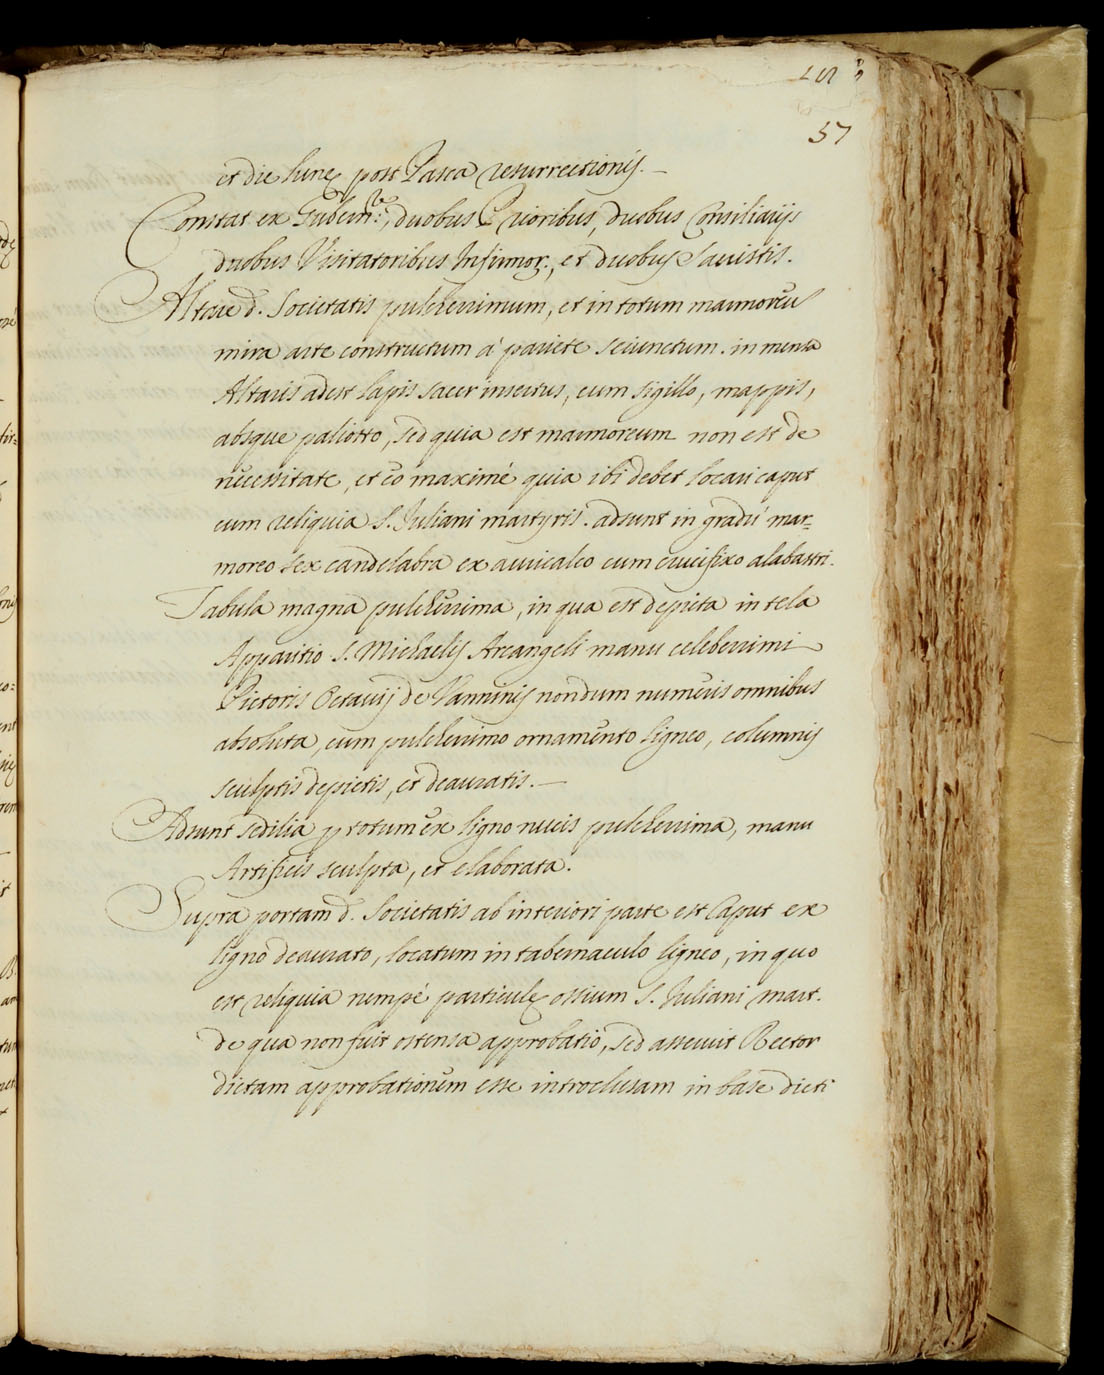 57
et die lunę post Pasca resurrectionis. —
Constat ex Gubern.re, duobus Prioribus, duobus Consiliarijs
duobus Visitatoribus Infirmor., et duobus Sacristis.
Altare d. Societatis pulcherrimum, et in totum marmoreū
mira arte constructum à pariete seiunctum. in mensa
Altaris adest lapis sacer insertus, cum sigillo, mappis,
absque paliotto, sed quia est marmoreum non est de
necessitate, et eò maximè quia ibi debet locari caput
cum reliquia S. Juliani martyris. adsunt in gradu mar-
moreo sex candelabra ex auricalco cum crucifixo alabastri.
Tabula magna pulcherrima, in qua est depicta in tela
Apparitio S. Michaelis Arcangeli manu celeberrimi
Pictoris Octavij de Vanninis nondum numeris omnibus
absoluta, cum pulcherrimo ornamento ligneo, columnis
sculptis depictis, et deauratis. —
Adsunt sedilia p totum ex ligno nucis pulcherrima, manu
Artificis sculpta, et elaborata.
Supra portam d. Societatis ab interiori parte est Caput ex
ligno deaurato, locatum in tabernaculo ligneo, in quo
est reliquia nempè particulę ossium S. Juliani mart.
de qua non fuit ostensa approbatio, sed asseruit Rector
dictam approbationem esse introclusam in base dicti